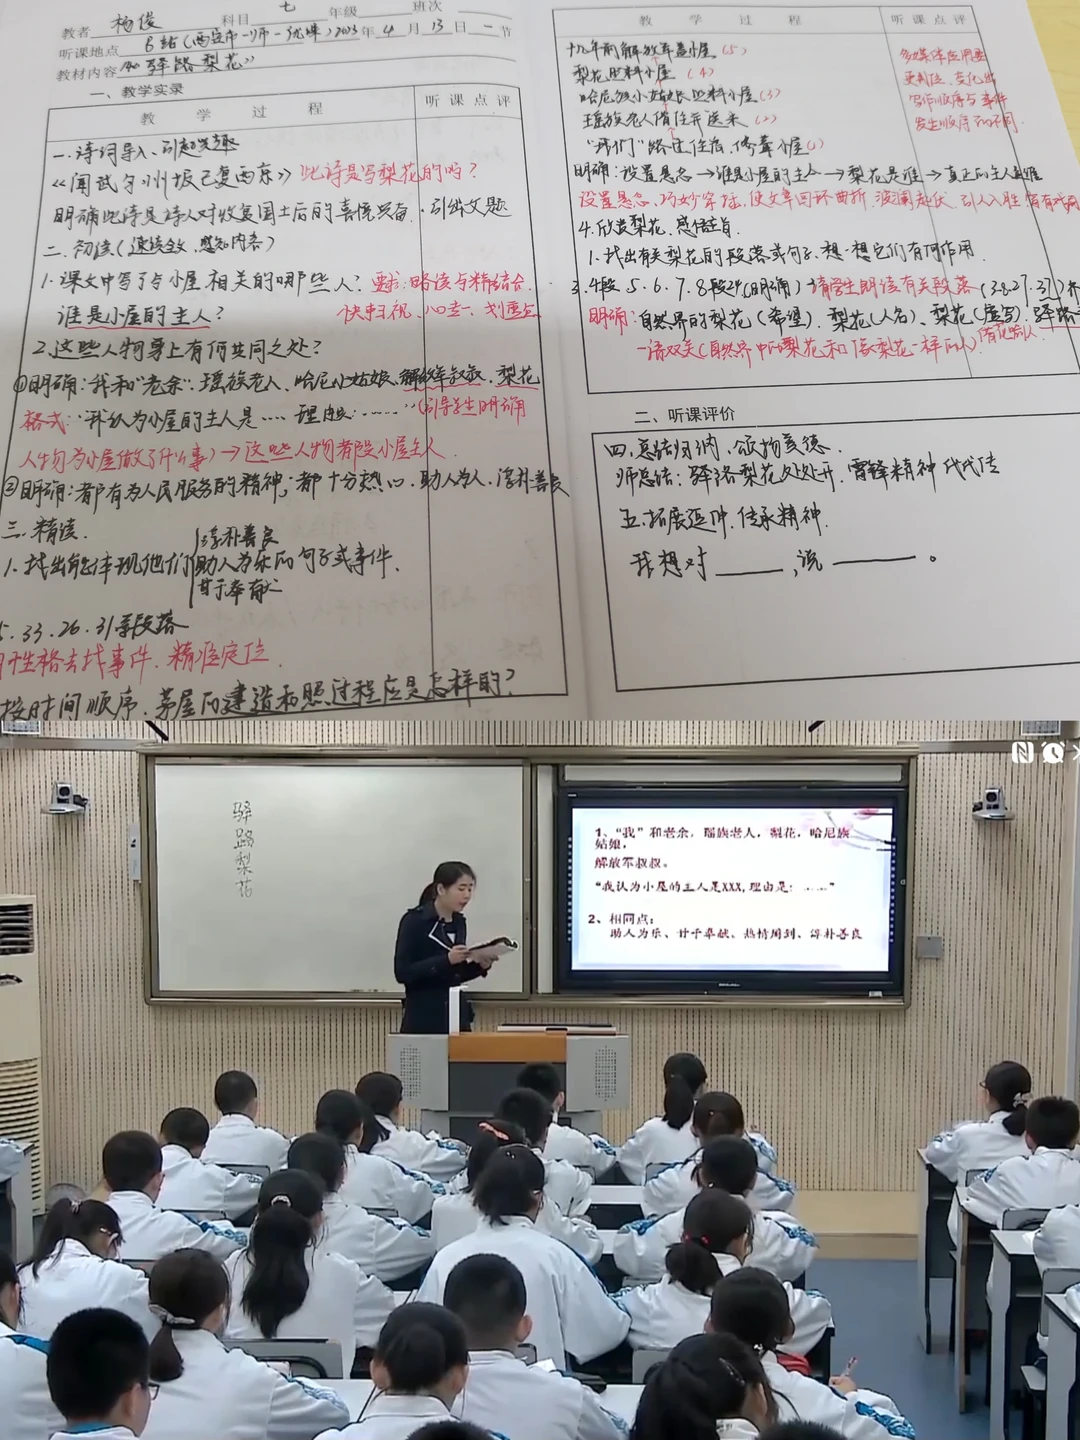 教者 杨俊 科目 七 年级 班次
听课地点 B站(西安市一师一优课) 2023年4月13日 一 节
教材内容 14《驿路梨花》
一、教学实录
教 学 过 程 听课点评
一.诗词导入、引起兴趣
《闻武匀州报已复西京》此诗是写梨花的吗?
明确此诗是诗人对收复国土后的喜悦兴奋.引出文题
二.初读(速读全文,感知内容)
1.课文中写了与小屋相关的哪些人?要求:略读与精读结合.
谁是小屋的主人? 快速扫视、心去一、划重点
2.这些人物身上有何共同之处?
①明确:我和"老余".瑶族老人、哈尼小姑娘、解放军叔叔、梨花
格式:"我认为小屋的主人是....理由是:......"(引导学生明确
人物为小屋做了什么事)→这些人物都是小屋主人.
②明确:都有为人民服务的精神;都十分热心.助人为人.淳朴善良
三.精读.
1.找出能体现他们
淳朴善良
助人为乐的句子或事件.
甘于奉献
5.33.26.31等段落
性格去找事件.精准定位.
按时间顺序.茅屋的建造和照过程应是怎样的?
教 学 过 程 听课点评
十几年前解放军盖小屋.(5)
梨花照料小屋(4)
哈尼族小姑娘照料小屋(3)
瑶族老人借住并送米(2)
"我们"路过住宿、修葺小屋(1)
多媒体应用要
更到位、变化出
写作顺序与事件
发生顺序的不同.
明确:设置悬念→谁是小屋的主人→梨花是谁→真正的主人是谁
设置悬念,巧妙穿插,使文章回环曲折,波澜起伏,引人入胜
4.欣赏梨花、感悟主旨.
1.找出有关梨花的段落或句子.想一想它们有何作用.
3.4段.5.6.7.8段.27(明确)请学生朗读有关段落(3.8.27.37)
明确:自然界的梨花(希望).梨花(人名)、梨花(虚写).驿路
一语双关(自然界中的梨花和像梨花一样的人)
二、听课评价
四.总结归纳、颂扬美德.
师总结:驿路梨花处处开.雷锋精神代代传
五.拓展延伸.传承精神.
我想对____,说____。
驿路梨花
1、"我"和老余,瑶族老人,梨花,哈尼族
姑娘,
解放军叔叔。
"我认为小屋的主人是XXX,理由是:……"
2、相同点:
助人为乐、甘于奉献、热情周到、淳朴善良